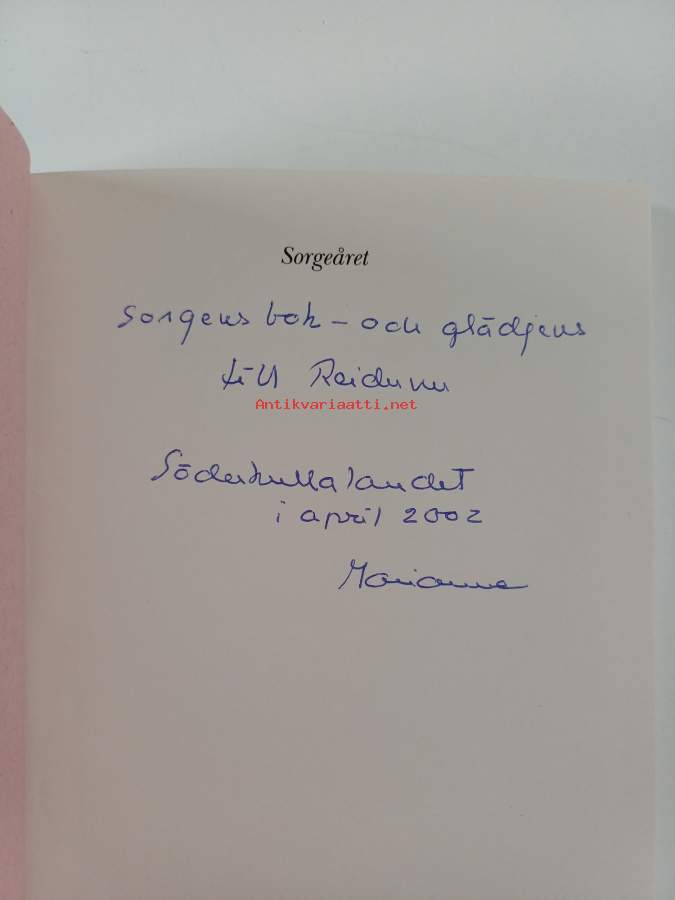 Sorgeåret
Sorgens bok – och glädjens
till Reidunn
Antikvariaatti.net
Söderkullalandet
i april 2002
Marianne